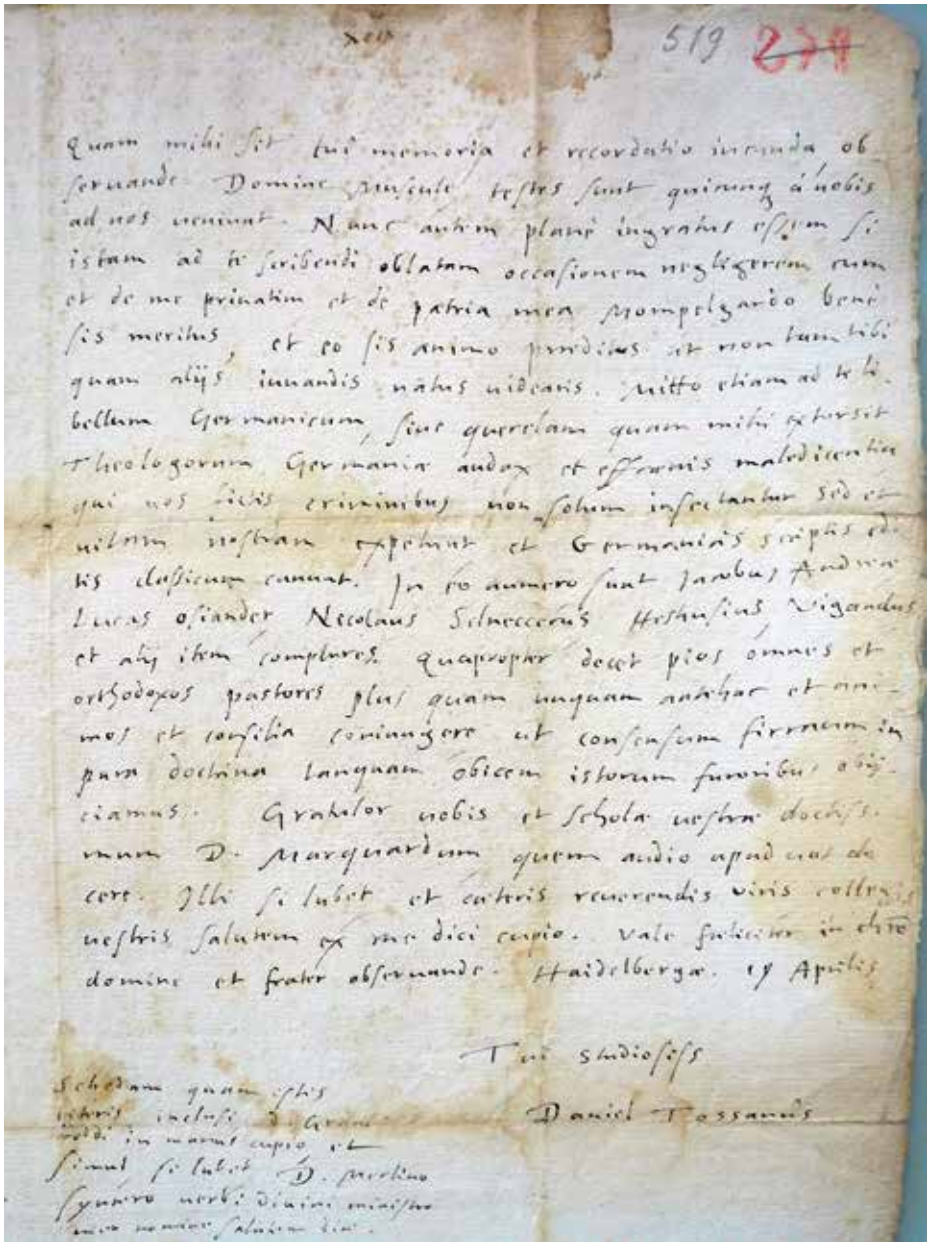 519 271
Quam mihi sit tui memoria et recordatio iucunda ob
seruande Domine Muscule testes sunt quicunq à uobis
ad nos ueniunt. Nunc autem planè ingratus essem si
istam ad te scribendi oblatam occasionem negligerem cum
et de me priuatim et de patria mea Mompelgardo benè
sis meritus, et eo sis animo præditus ut non tam tibi
quam alijs iuuandis natus uidearis. Mitto etiam ad te li-
bellum Germanicum, siue querelam quam mihi extorsit
Theologorum Germaniæ audax et effrænis maledicentia
qui nos fictis criminibus non solum insectantur sed et
nostram expetunt et Germanicis scriptis edi-
tis classicum canunt. In eo numero sunt Jacobus Andreæ
Lucas Osiander Nicolaus Selneccerus Heshusius Vigandus
et alij item complures. Quapropter decet pios omnes et
orthodoxos pastores plus quam unquam antehac et ani-
mos et consilia coniungere ut consensum firmum in
pura doctrina tanquam obicem istorum furoribus obij-
ciamus. Gratulor uobis et scholæ uestræ doctiss-
mum D. Marquardum quem audio apud uos do
cere. Illi si lubet et cæteris reuerendis uiris collegis
uestris salutem ex me dici cupio. Vale fœliciter in chro
domine et frater obseruande. Haidelbergæ. 19 Aprilis
Tui studiosiss
Daniel Tossanus
Schedam quam istis
literis inclusi D.
reddi in manus cupio et
simul si lubet D. Merlino
syncero uerbi diuini ministro
meo nomine salutem dici.